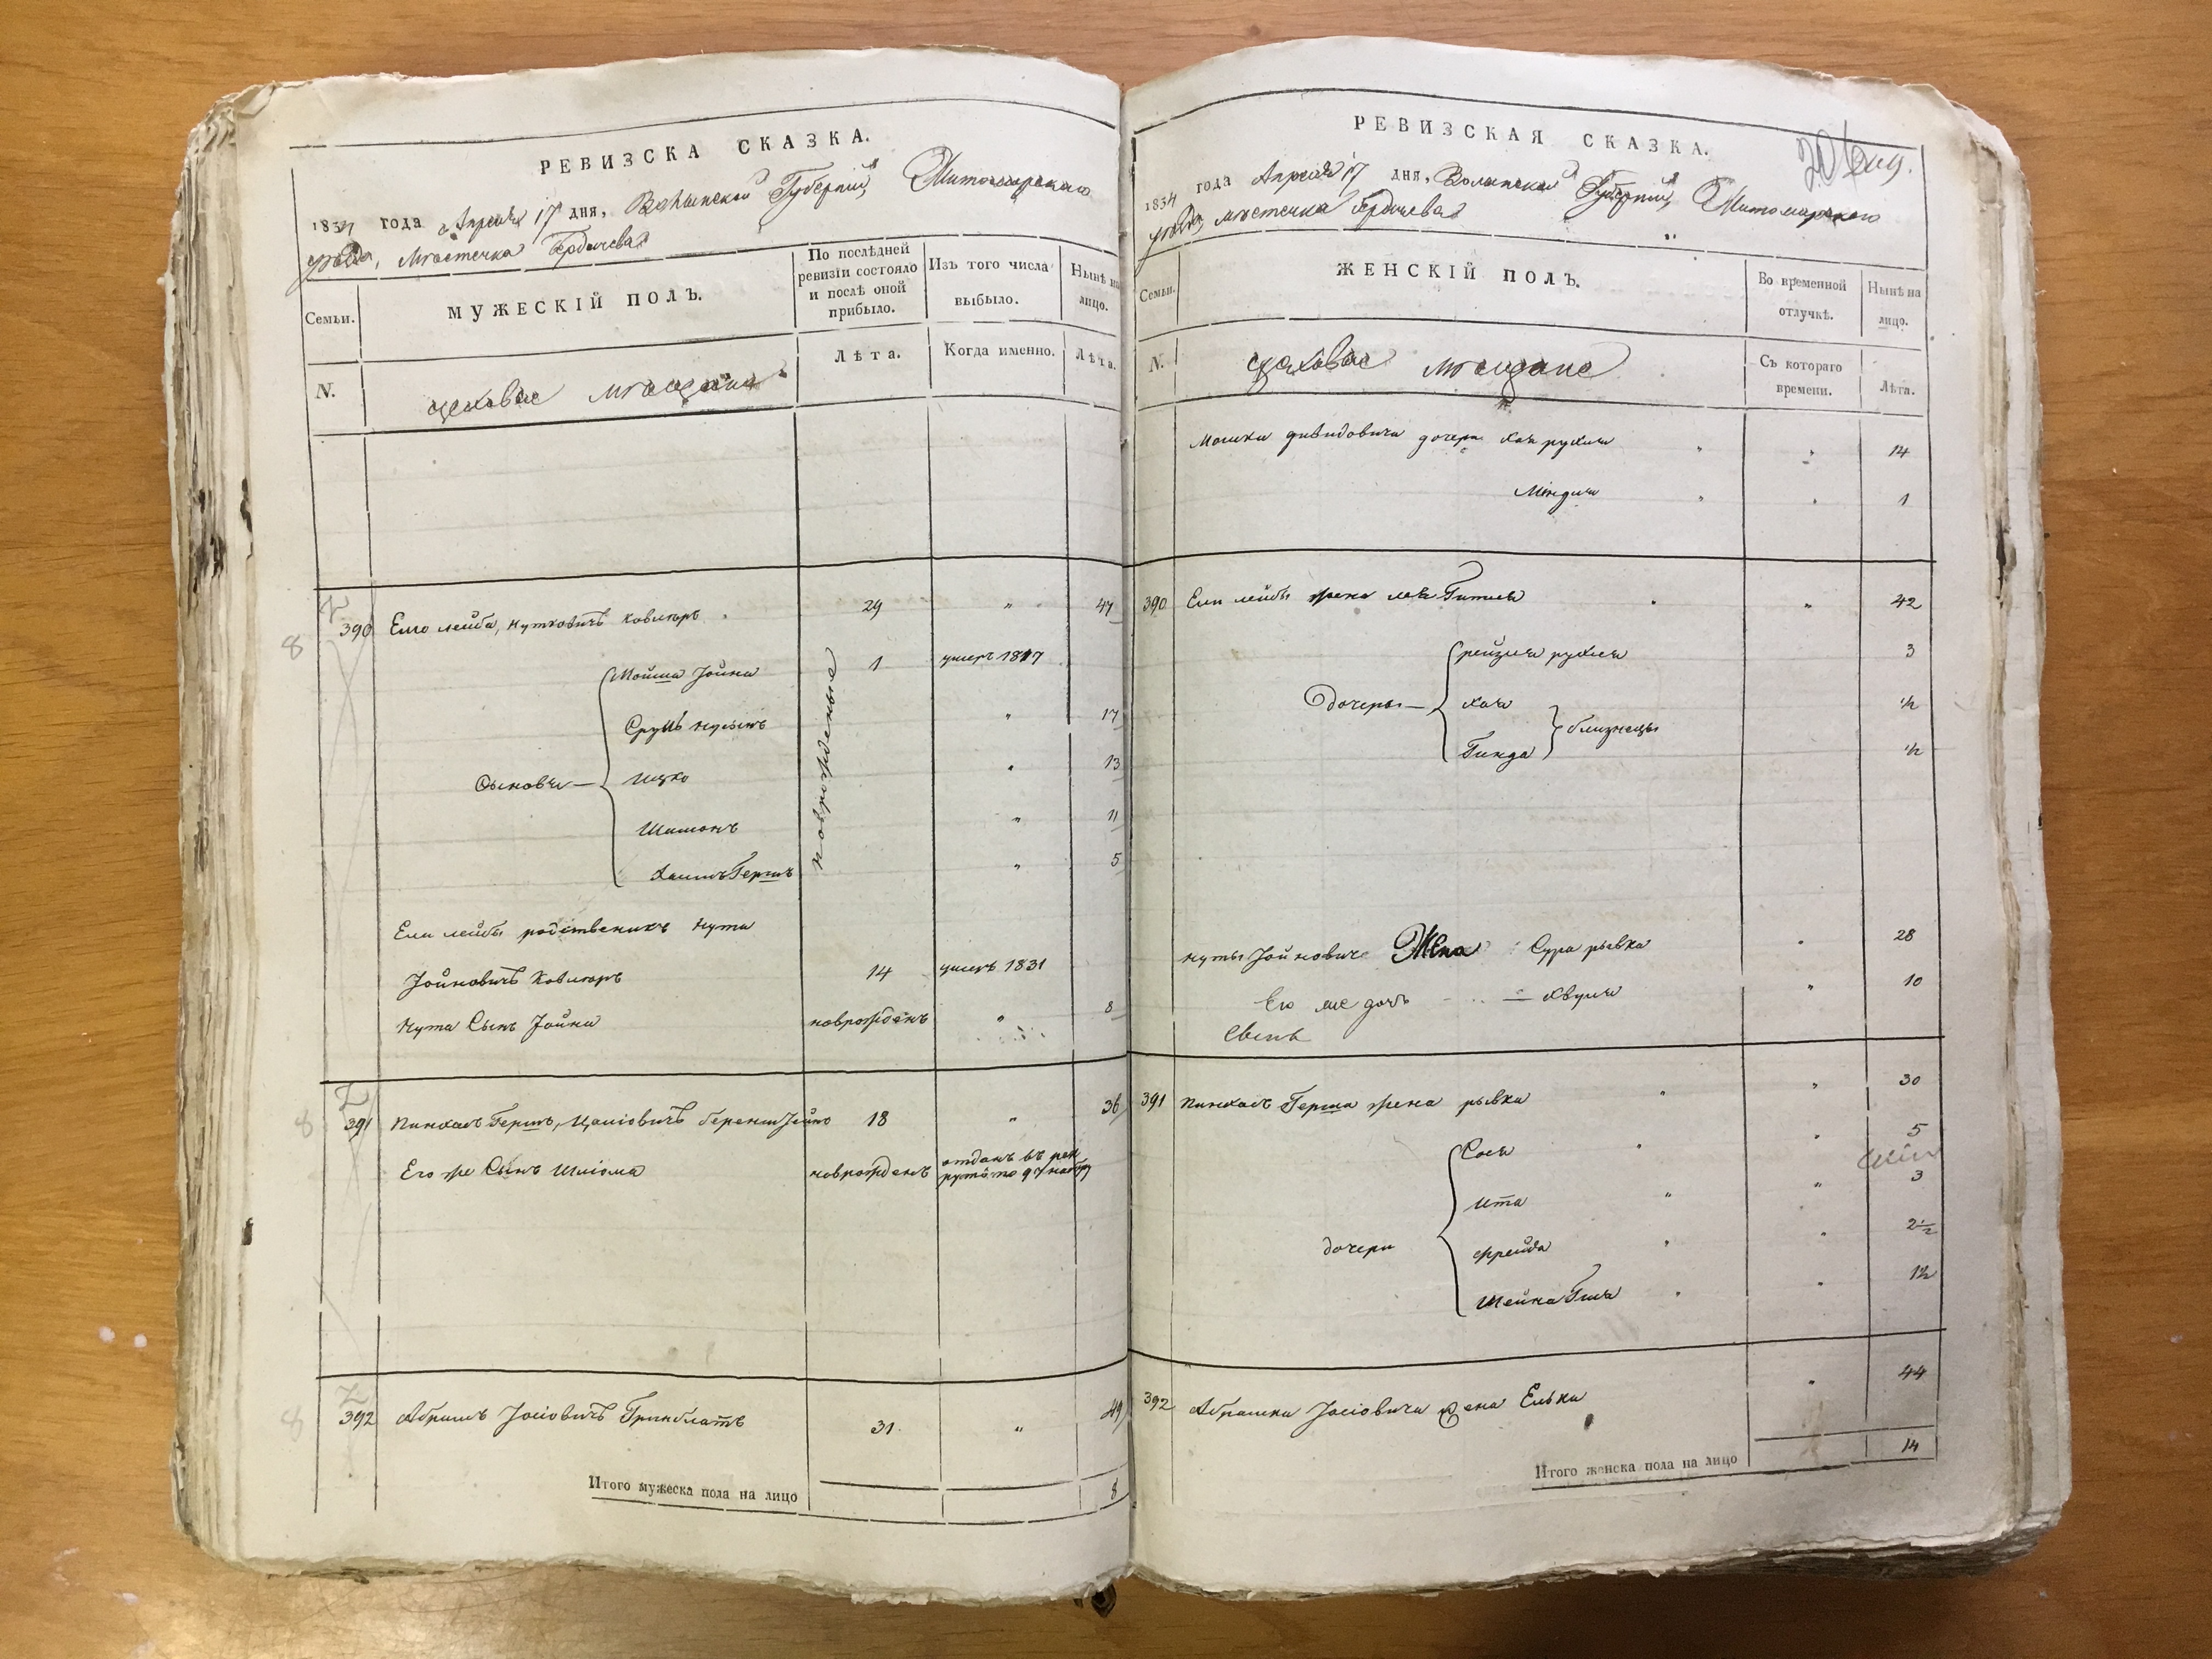 РЕВИЗСКА СКАЗКА.
1834 года Апреля 17 дня, Волынской Губернии, Житомирскаго
уѣзда, Мѣстечка Бердичева
Семьи.
МУЖЕСКІЙ ПОЛЪ.
По послѣдней ревизіи состояло и послѣ оной прибыло.
Изъ того числа выбыло.
Нынѣ на лицо.
N.
цеховые мѣщане
Лѣта.
Когда именно.
Лѣта.
390 Елло лейба, Нутковичъ Ковлюръ 29 " 47
8
Сыновья
Мойша Іойна 1 умеръ 1817
новорожденые
Сруль 17
Ицко " 13
Шимонъ " 11
Хаимъ Гершъ " 5
Ели лейбы родственикъ Нута
Іойновичъ Ковлюръ 14 умеръ 1831
Нута Сынъ Іойна новорожденъ " 8
8
391 Пинхасъ Гершъ, 18 " 36
Его же Сынъ Шліома новорожденъ отданъ въ рек
руты по 94 набору
8
392 Абрамъ Іосіовичъ Гринблатъ 31 " 49
Итого мужеска пола на лицо 8
РЕВИЗСКАЯ СКАЗКА.
1834 года Апреля 17 дня, Волынской Губернии, Житомирскаго
уѣзда, мѣстечка Бердичева
Семьи.
ЖЕНСКІЙ ПОЛЪ.
Во временной отлучкѣ.
Нынѣ на лицо.
N.
цеховые мѣщане
Съ котораго времени.
Лѣта.
Мошки дивидовича дочери Хая рухля " " 14
Миндля " " 1
390 Ели лейбы жена лея Гитля " " 42
Дочеры
рейзля рухля 3
хая ½
Гинда ½
близнецы
нуты Іойновича Жена Сура рывка " 28
Его же дочь Хвуля " 10
391 Пинхасъ Герша жена рывка " " 30
дочери
Сося " " 5
Ита " " 3
фрейда " " 2½
Шейна Гиля " " 1½
392 Абрашки Іосіовича жена Елька " 44
Итого женска пола на лицо 14